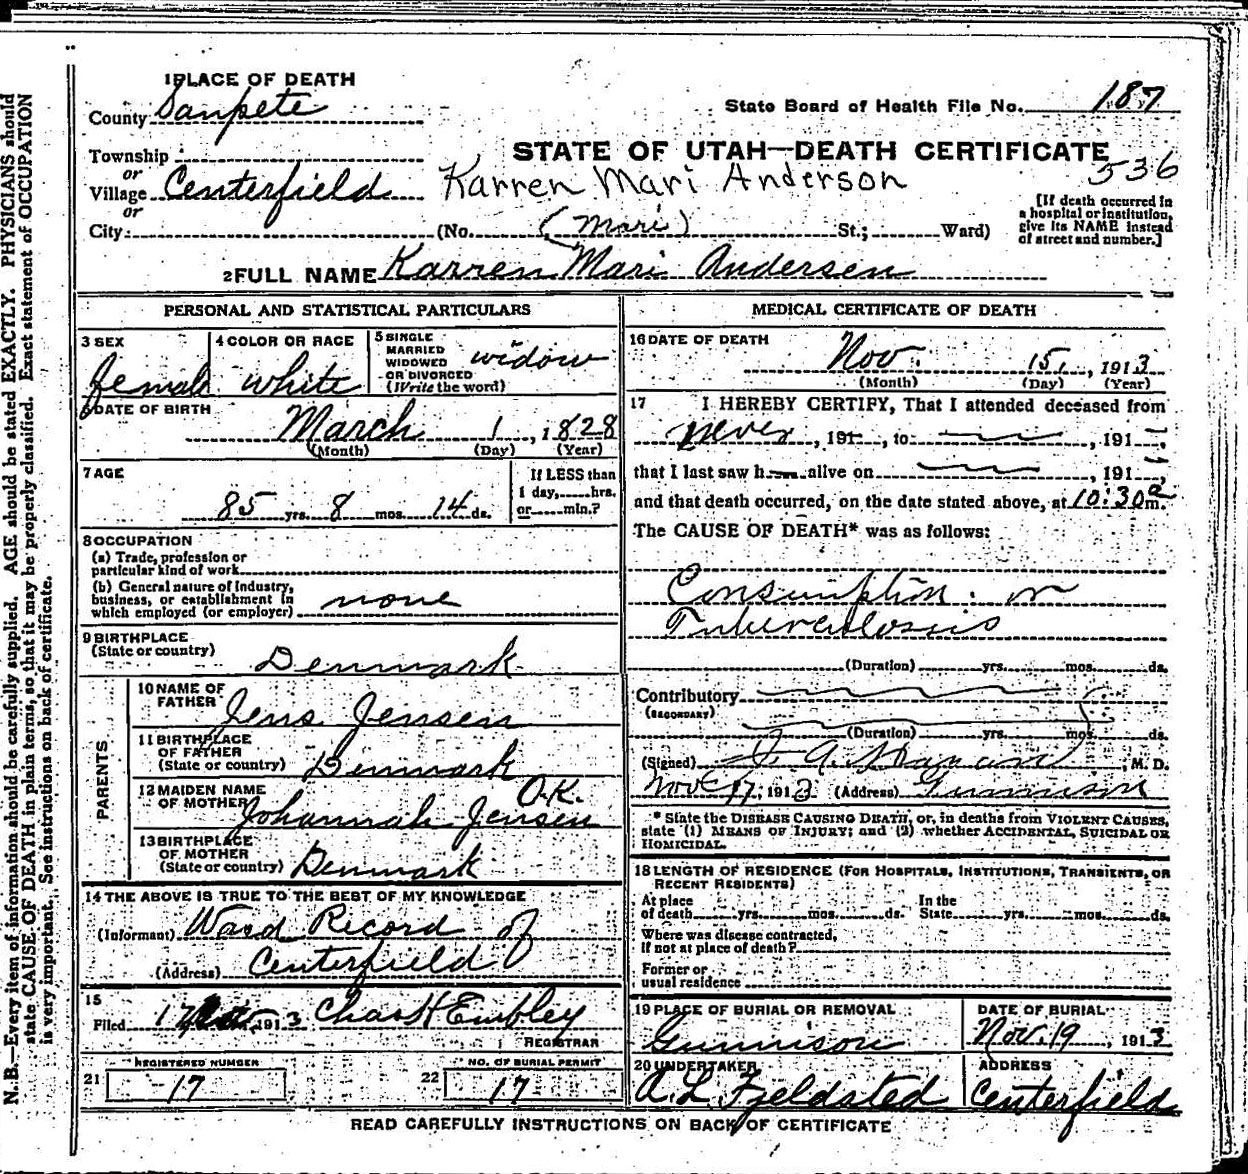 1 PLACE OF DEATH
County Sanpete
State Board of Health File No. 187
Township
or
Village Centerfield
or
City
STATE OF UTAH—DEATH CERTIFICATE
536
Karren Mari Anderson
[If death occurred in
a hospital or institution,
give its NAME instead
of street and number.]
(No. (Mari) St.; Ward)
2 FULL NAME Karren Mari Andersen
PERSONAL AND STATISTICAL PARTICULARS
3 SEX female
4 COLOR OR RACE white
5 SINGLE
MARRIED
WIDOWED
OR DIVORCED
(Write the word) widow
6 DATE OF BIRTH
March 1, 1828
(Month) (Day) (Year)
7 AGE
85 yrs. 8 mos. 14 ds.
If LESS than
1 day,......hrs.
or......min.?
8 OCCUPATION
(a) Trade, profession or
particular kind of work
(b) General nature of industry,
business, or establishment in
which employed (or employer) none
9 BIRTHPLACE
(State or country) Denmark
PARENTS
10 NAME OF
FATHER Jens Jensen
11 BIRTHPLACE
OF FATHER
(State or country) Denmark
12 MAIDEN NAME
OF MOTHER Johannah Jensen
O.K.
13 BIRTHPLACE
OF MOTHER
(State or country) Denmark
14 THE ABOVE IS TRUE TO THE BEST OF MY KNOWLEDGE
(Informant) Ward Record of
(Address) Centerfield
15
Filed 17 1913 Chas H Embley
REGISTRAR
REGISTERED NUMBER
21 17
NO. OF BURIAL PERMIT
22 17
MEDICAL CERTIFICATE OF DEATH
16 DATE OF DEATH
Nov. 15, 1913
(Month) (Day) (Year)
17 I HEREBY CERTIFY, That I attended deceased from
never, 191 , to , 191
that I last saw h alive on , 191
and that death occurred, on the date stated above, at 10:30 a m.
The CAUSE OF DEATH* was as follows:
Consumption. or
Tuberculosus
(Duration) yrs. mos. ds.
Contributory
(SECONDARY)
(Duration) yrs. mos. ds.
(Signed) M. D.
Nov 17, 1913 (Address) Gunnison
* State the DISEASE CAUSING DEATH, or, in deaths from VIOLENT CAUSES,
state (1) MEANS OF INJURY; and (2) whether ACCIDENTAL, SUICIDAL OR
HOMICIDAL.
18 LENGTH OF RESIDENCE (FOR HOSPITALS, INSTITUTIONS, TRANSIENTS, OR
RECENT RESIDENTS)
At place In the
of death yrs. mos. ds. State yrs. mos. ds.
Where was disease contracted,
if not at place of death?
Former or
usual residence
19 PLACE OF BURIAL OR REMOVAL
Gunnison
DATE OF BURIAL
Nov. 19, 1913
20 UNDERTAKER
A. L. Fjeldsted
ADDRESS
Centerfield
READ CAREFULLY INSTRUCTIONS ON BACK OF CERTIFICATE
N. B.—Every item of information should be carefully supplied. AGE should be stated EXACTLY. PHYSICIANS should
state CAUSE OF DEATH in plain terms, so that it may be properly classified. Exact statement of OCCUPATION
is very important. See instructions on back of certificate.